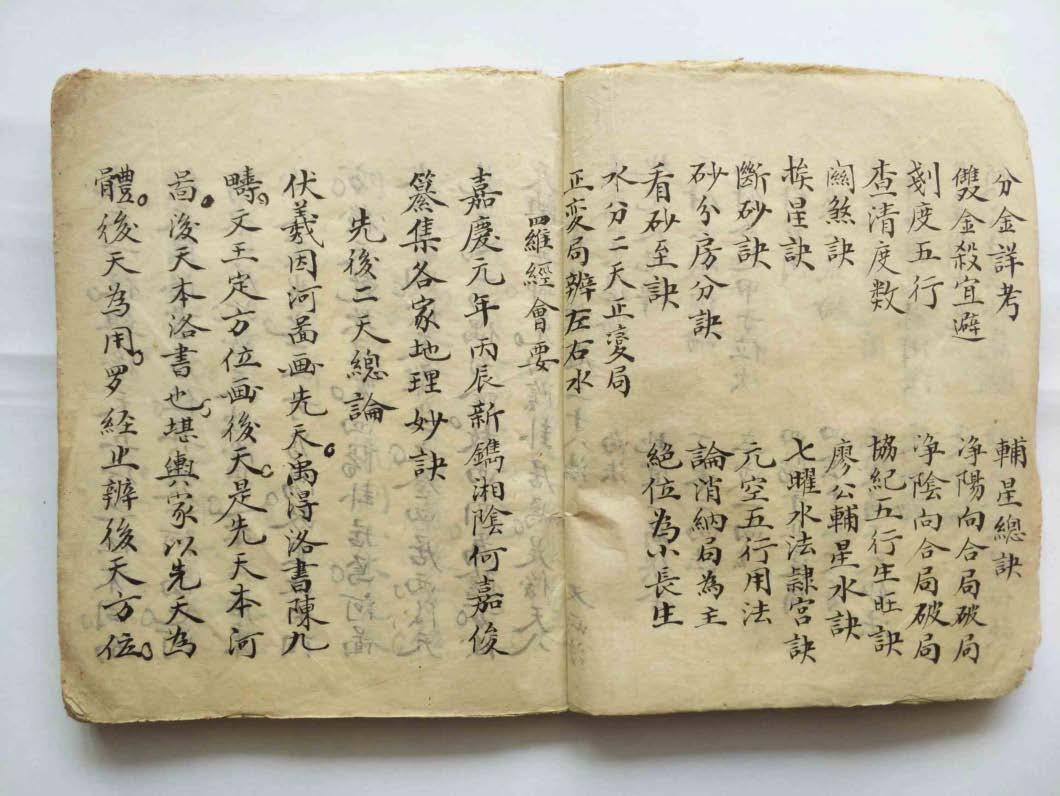 分金詳考
雙金殺宜避
剗度五行
查清度数
関煞訣
挨星訣
斷砂訣
砂分房分訣
看砂至訣
水分二天正変局
正変局辨左右水
輔星總訣
净陽向合局破局
净陰向合局破局
協紀五行生旺訣
廖公輔星水訣
七曜水法隷宮訣
元空五行用法
論消納局為主
絕位為小長生
羅經會要
嘉慶元年丙辰新鐫湘陰何嘉俊
纂集各家地理妙訣
先後二天總論
伏羲因河啚画先天禹得洛書陳九
疇文王定方位画後天是先天本河
啚後天本洛書也堪輿家以先天為
體後天為用罗経止辨後天方位